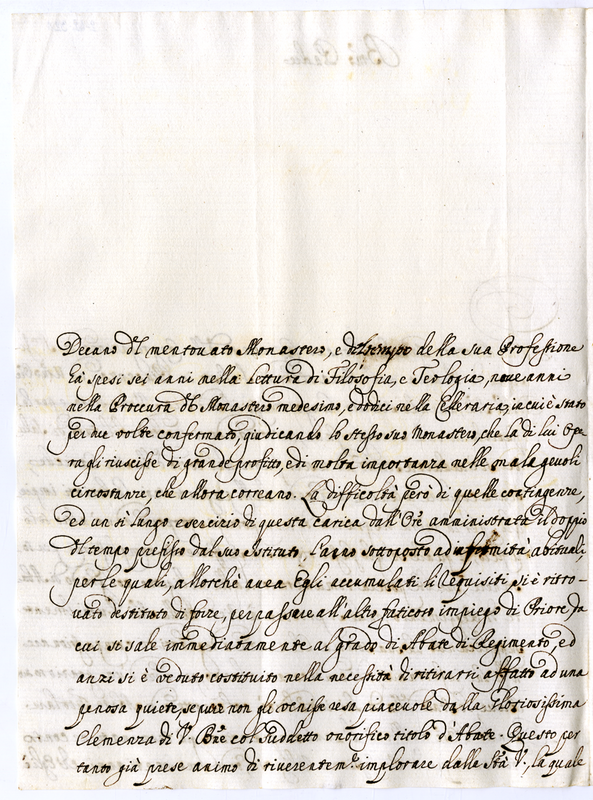 Decano d'el mentouato Monastero, e d'el tempo della sua Professione
hà spesi sei anni nella Lettura di Filosofia, e Teologia, noue anni
nella Procura d'el Monastero medesimo, e dodici nella Celleraria, in cui è stato
per due volte confermato, giudicando lo stesso suo Monastero, che la di lui Ope-
ra gli riuscisse di grande profitto, e di molta importanza nelle malageuoli
circostanze, che allora correano. La difficoltà però di quelle contingenze,
ed un sì lungo esercizio di questa carica dall' Ore amministrata il doppio
d'el tempo prefisso dal suo Istituto, l'anno sottoposto ad infermità abituali,
per le quali, allorchè auea Egli accumulati li requisiti, si è ritro-
uato destituto di forze, per passare all' altro faticoso impiego di Priore, da
cui si sale immediatamente al grado di Abate di Regimento, ed
anzi si è veduto costituito nella necessità di ritirarsi affatto ad una
penosa quiete, se pure non gli venisse resa piaceuole dalla Gloriosissima
Clemenza di V. Bne col suddetto onorifico titolo d'Abate. Questo per
tanto già prese animo di riuerentem.e implorare dalla Stà V., la quale